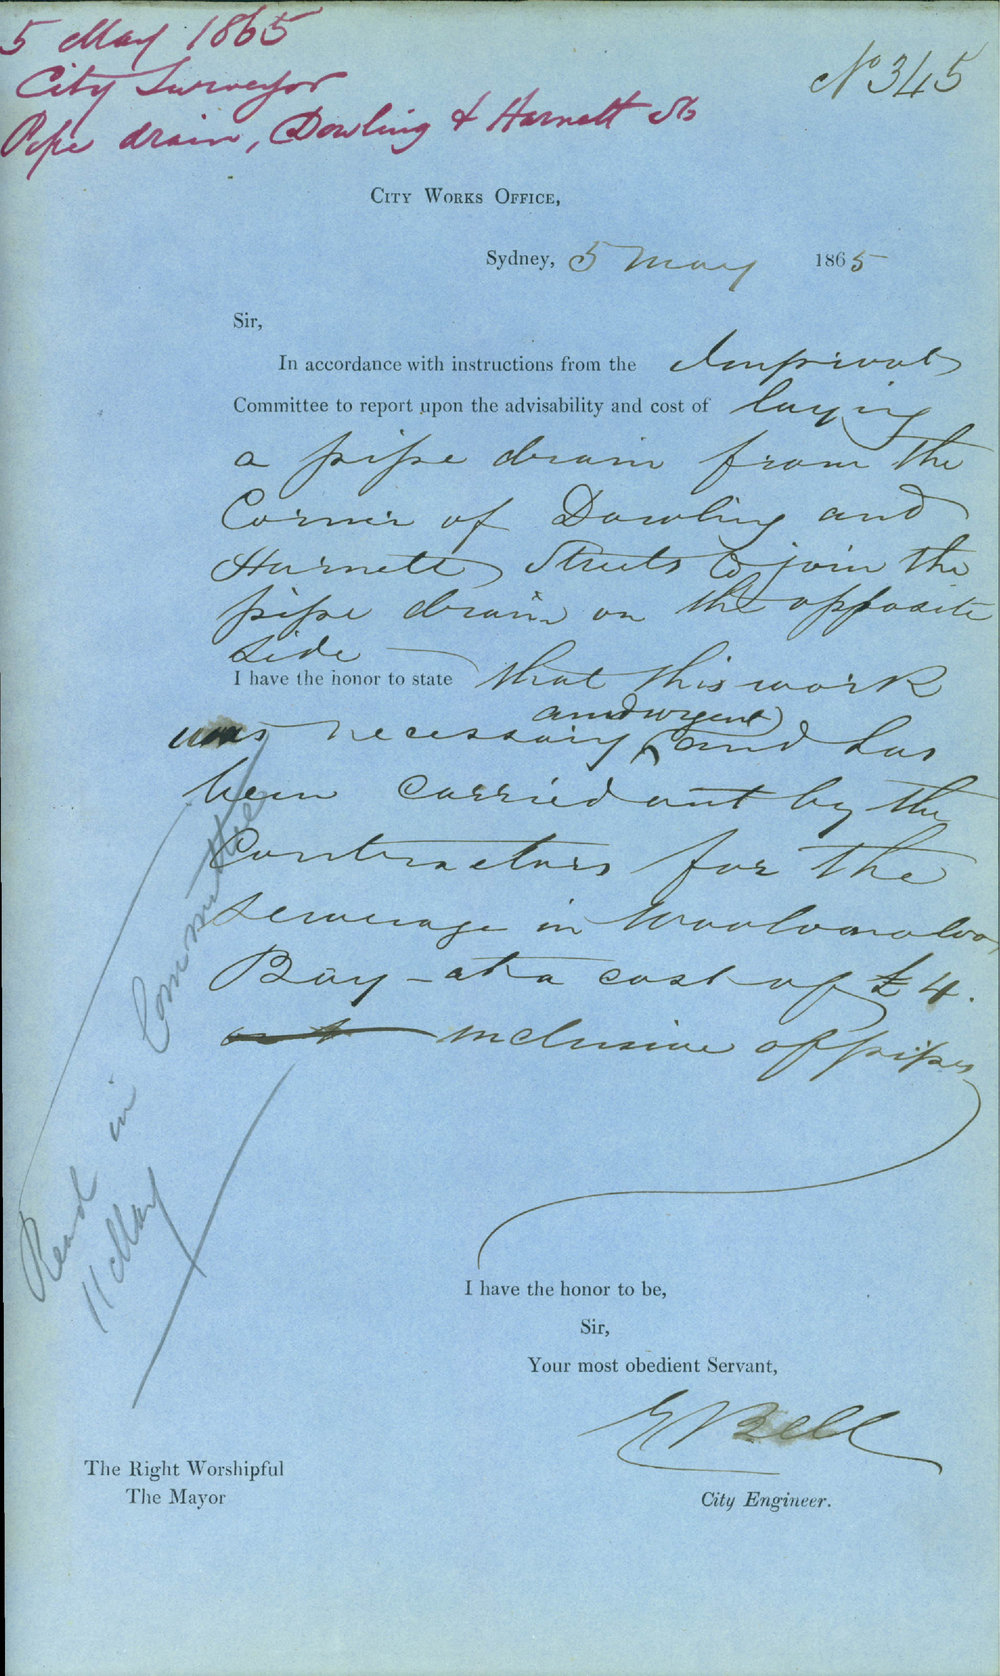 5 May 1865
City Surveyor
Pipe drain, Dowling & Harnett Sts
No 345
CITY WORKS OFFICE,
Sydney, 5 May 1865
Sir,
In accordance with instructions from the Improvmt
Committee to report upon the advisability and cost of laying
a pipe drain from the
Corner of Dowling and
Harnett Streets to join the
pipe drain on the opposite
side
I have the honor to state that this work
and urgent
was necessary and has
been carried out by the
Contractors for the
Sewerage in Woolomoloo
Bay - at a cost of £4.
inclusive of pipes
Read in Committee
11 May
I have the honor to be,
Sir,
Your most obedient Servant,
E Bell
The Right Worshipful
The Mayor
City Engineer.